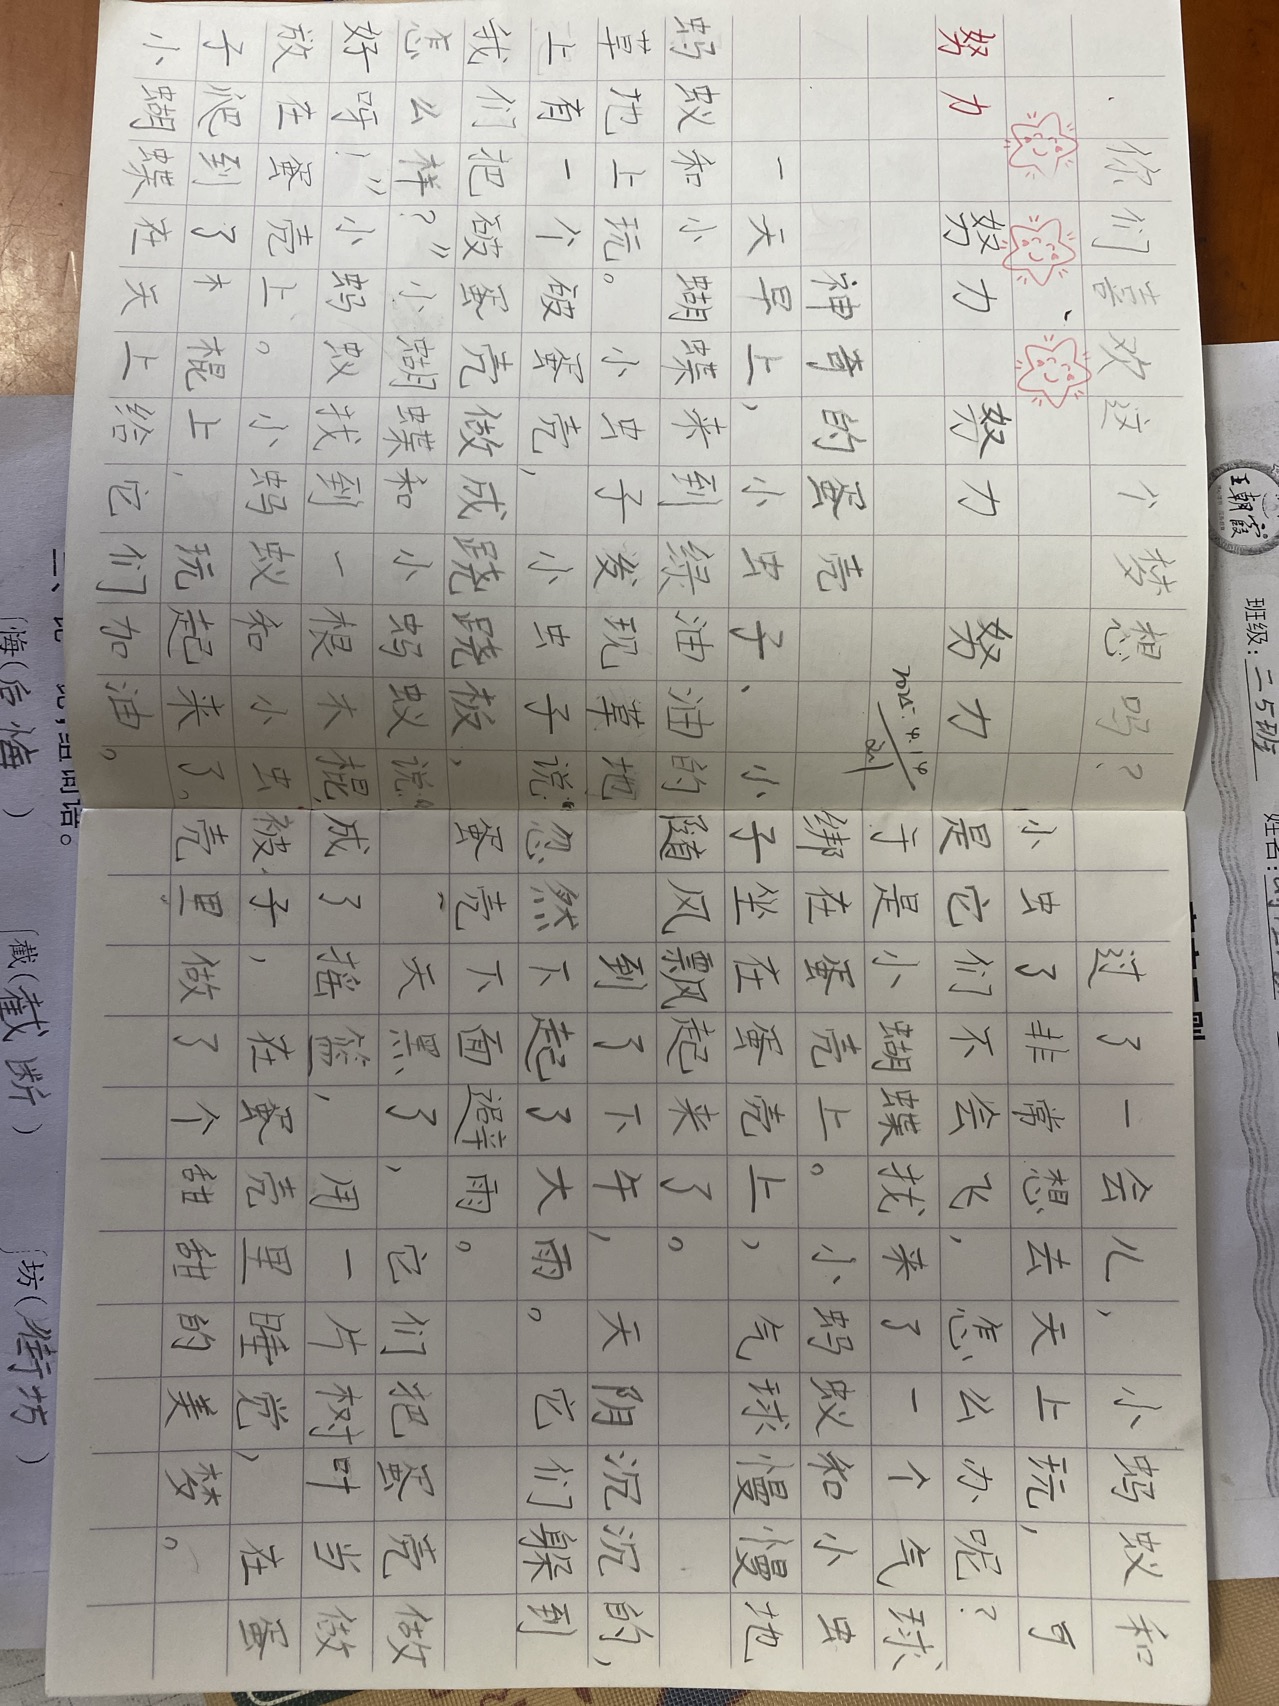 你们喜欢这个梦想吗？
努力 努力 努力 努力
2025.4.14
神奇的蛋壳
一天早上，小虫子、小
蚂蚁和小蝴蝶来到绿油油的
草地上玩。小虫子发现草地
上有一个破蛋壳，小虫子说：“
我们把破蛋壳做成跷跷板，
怎么样？”小蝴蝶和小蚂蚁说：“
好呀！”小蚂蚁找到一根木棍，
放在蛋壳上。小蚂蚁和小虫
子爬到了木棍上，玩起来了。
小蝴蝶在天上给它们加油。
过了一会儿，小蚂蚁和
小虫了非常想去天上玩，可
是它们不会飞，怎么办呢？
于是小蝴蝶找来了一个气球，
绑在蛋壳上。小蚂蚁和小虫
子坐在蛋壳上，气球慢慢地
随风飘起来了。
到了下午，天阴沉沉的，
忽然下起了大雨。它们躲到
蛋壳下面避雨。
天黑了，它们把蛋壳做
成了摇篮，用一片树叶当做
被子，在蛋壳里睡觉，在蛋
壳里做了个甜甜的美梦。
王朝霞
班级：二5班 姓名：
组词语。
悔（后悔） 截（截断） 坊（街坊）